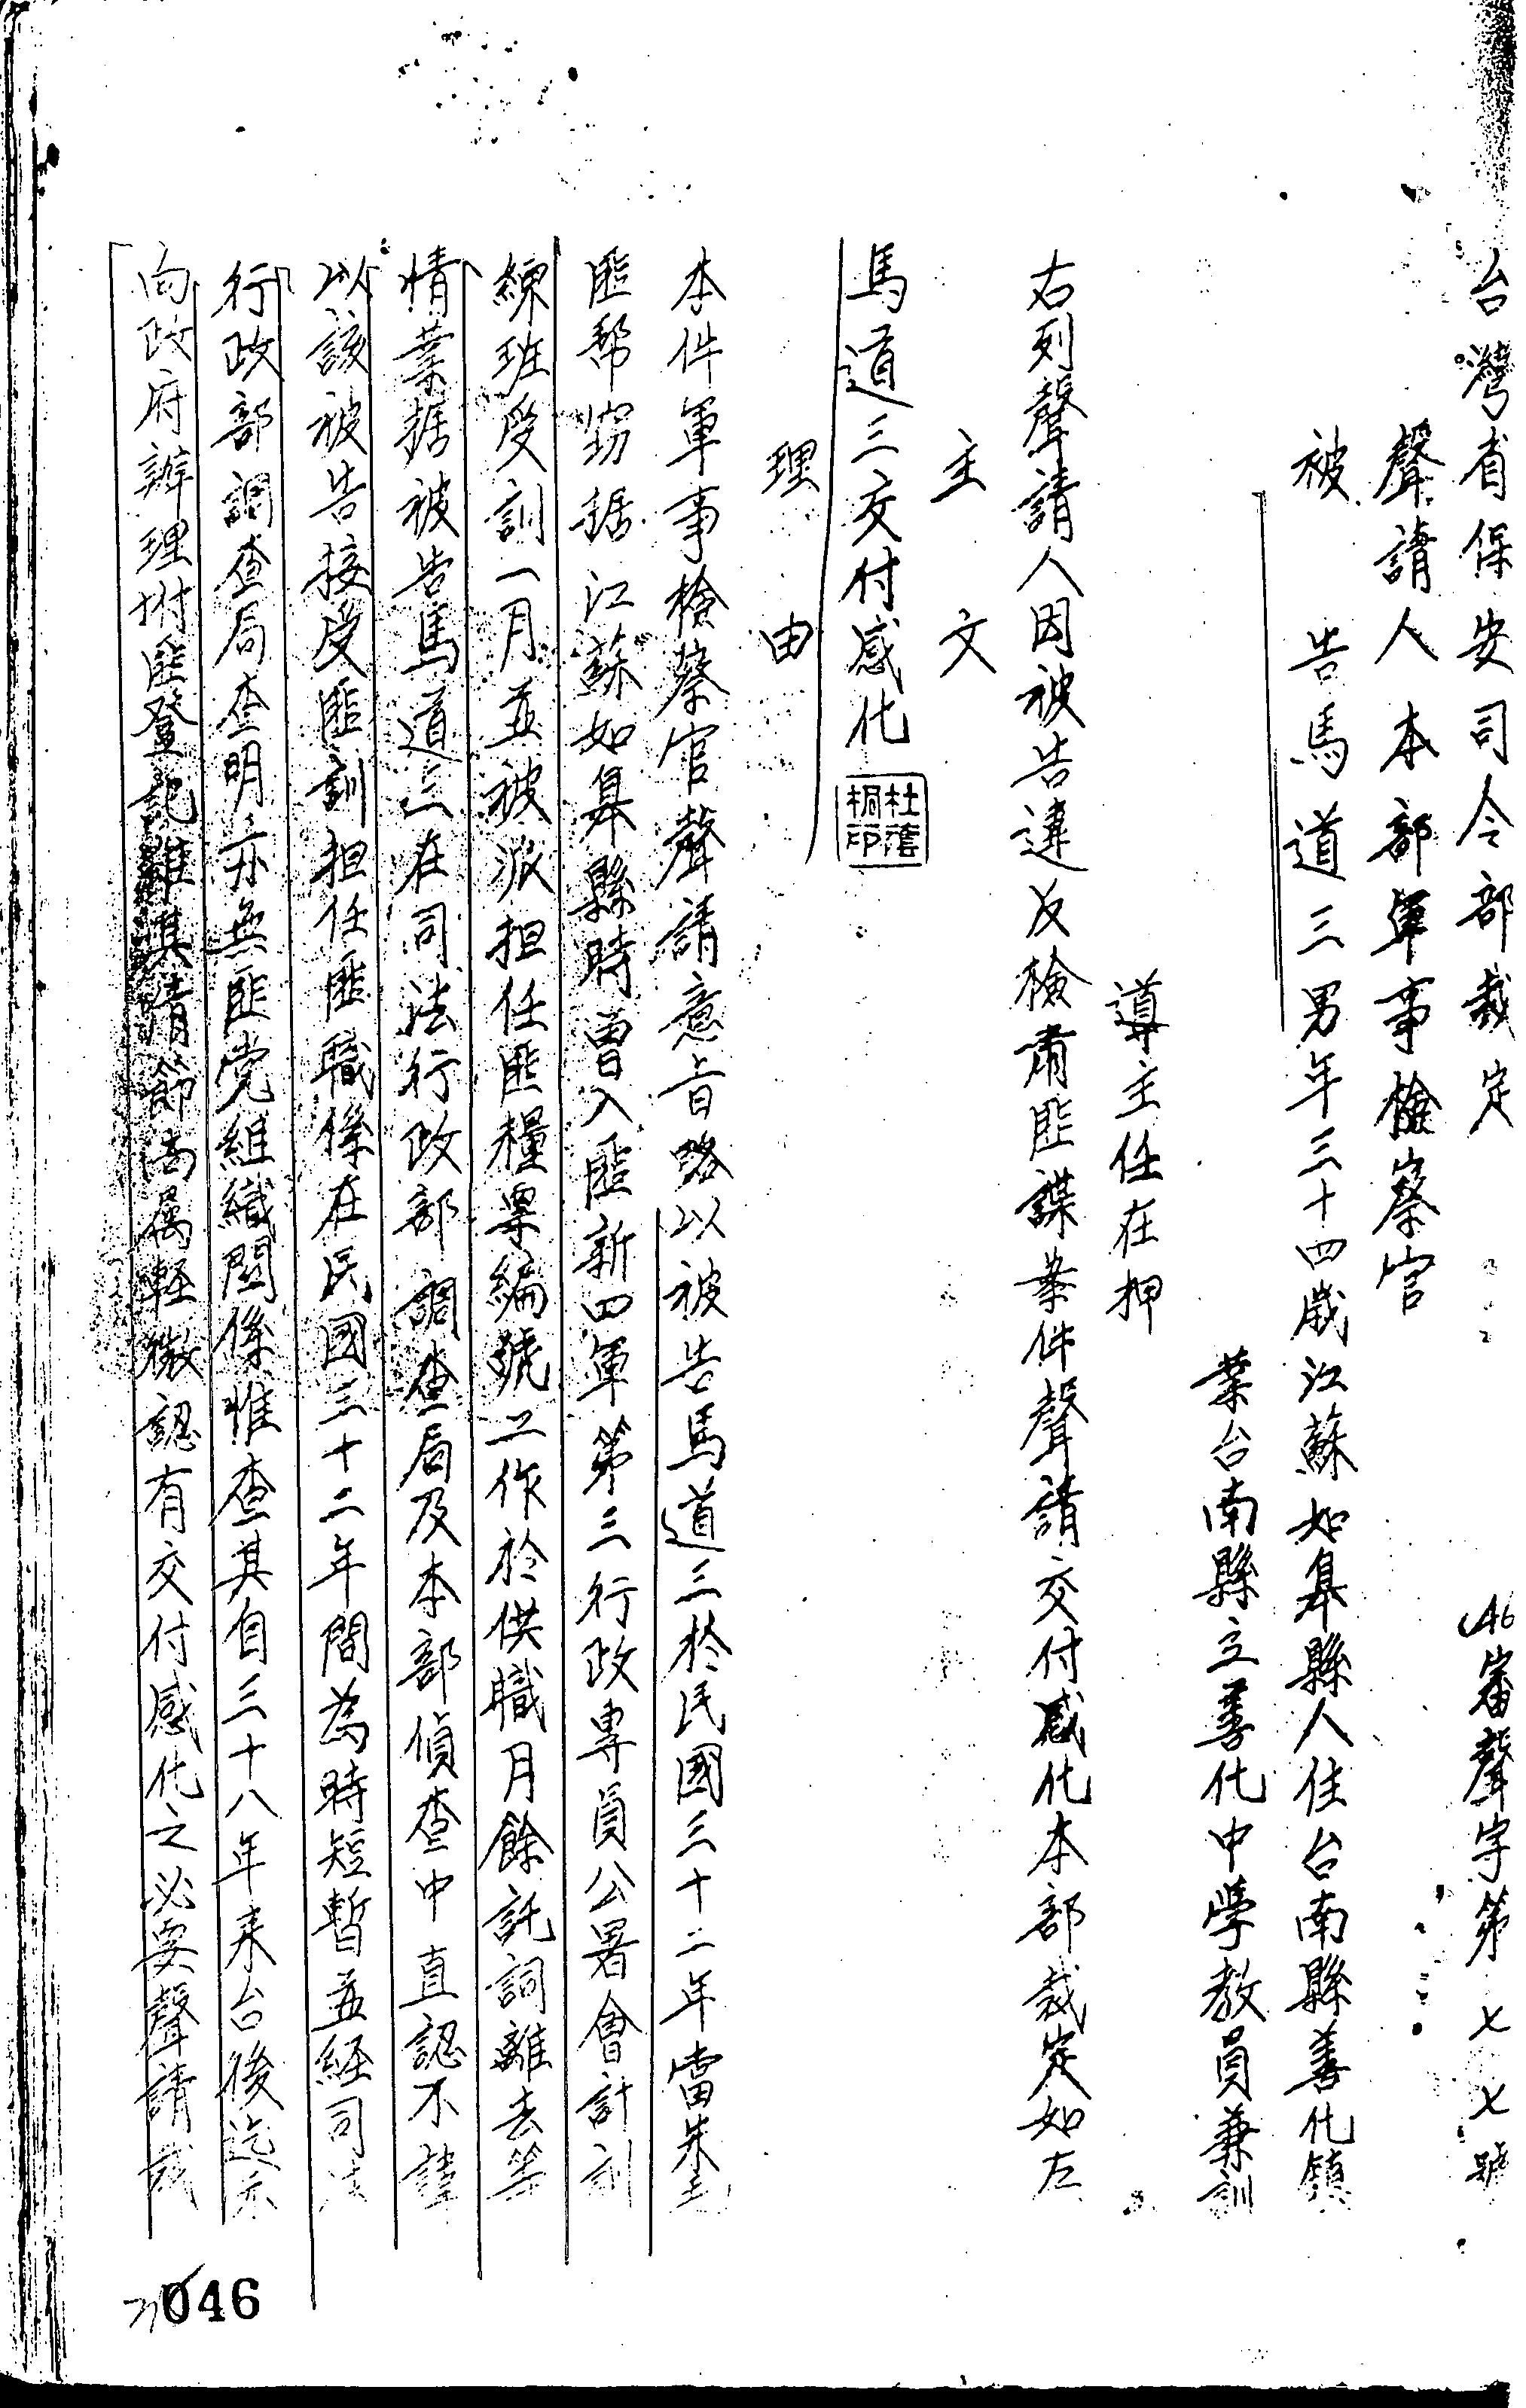 台灣省保安司令部裁定 (46)審聲字第七七號
聲請人本部軍事檢察官
被告馬道三男年三十四歲江蘇如皋縣人住台南縣善化鎮
業台南縣立善化中學教員兼訓
導主任在押
右列聲請人因被告違反檢肅匪諜案件聲請交付感化本部裁定如左
主文
馬道三交付感化
杜蔭桐印
理由
本件軍事檢察官聲請意旨略以被告馬道三於民國三十二年當朱毛
匪幫竊據江蘇如皋縣時曾入匪新四軍第三行政專員公署會計訓
練班受訓一月並被派担任匪糧票編號工作於供職月餘託詞離去等
情業据被告馬道三在司法行政部調查局及本部偵查中直認不諱
以該被告接受匪訓担任匪職係在民國三十二年間為時短暫並経司法
行政部調查局查明并無匪党組織關係惟查其自三十八年来台後迄未
向政府辦理附匪登記雖其情節尚属輕微認有交付感化之必要聲請裁
046